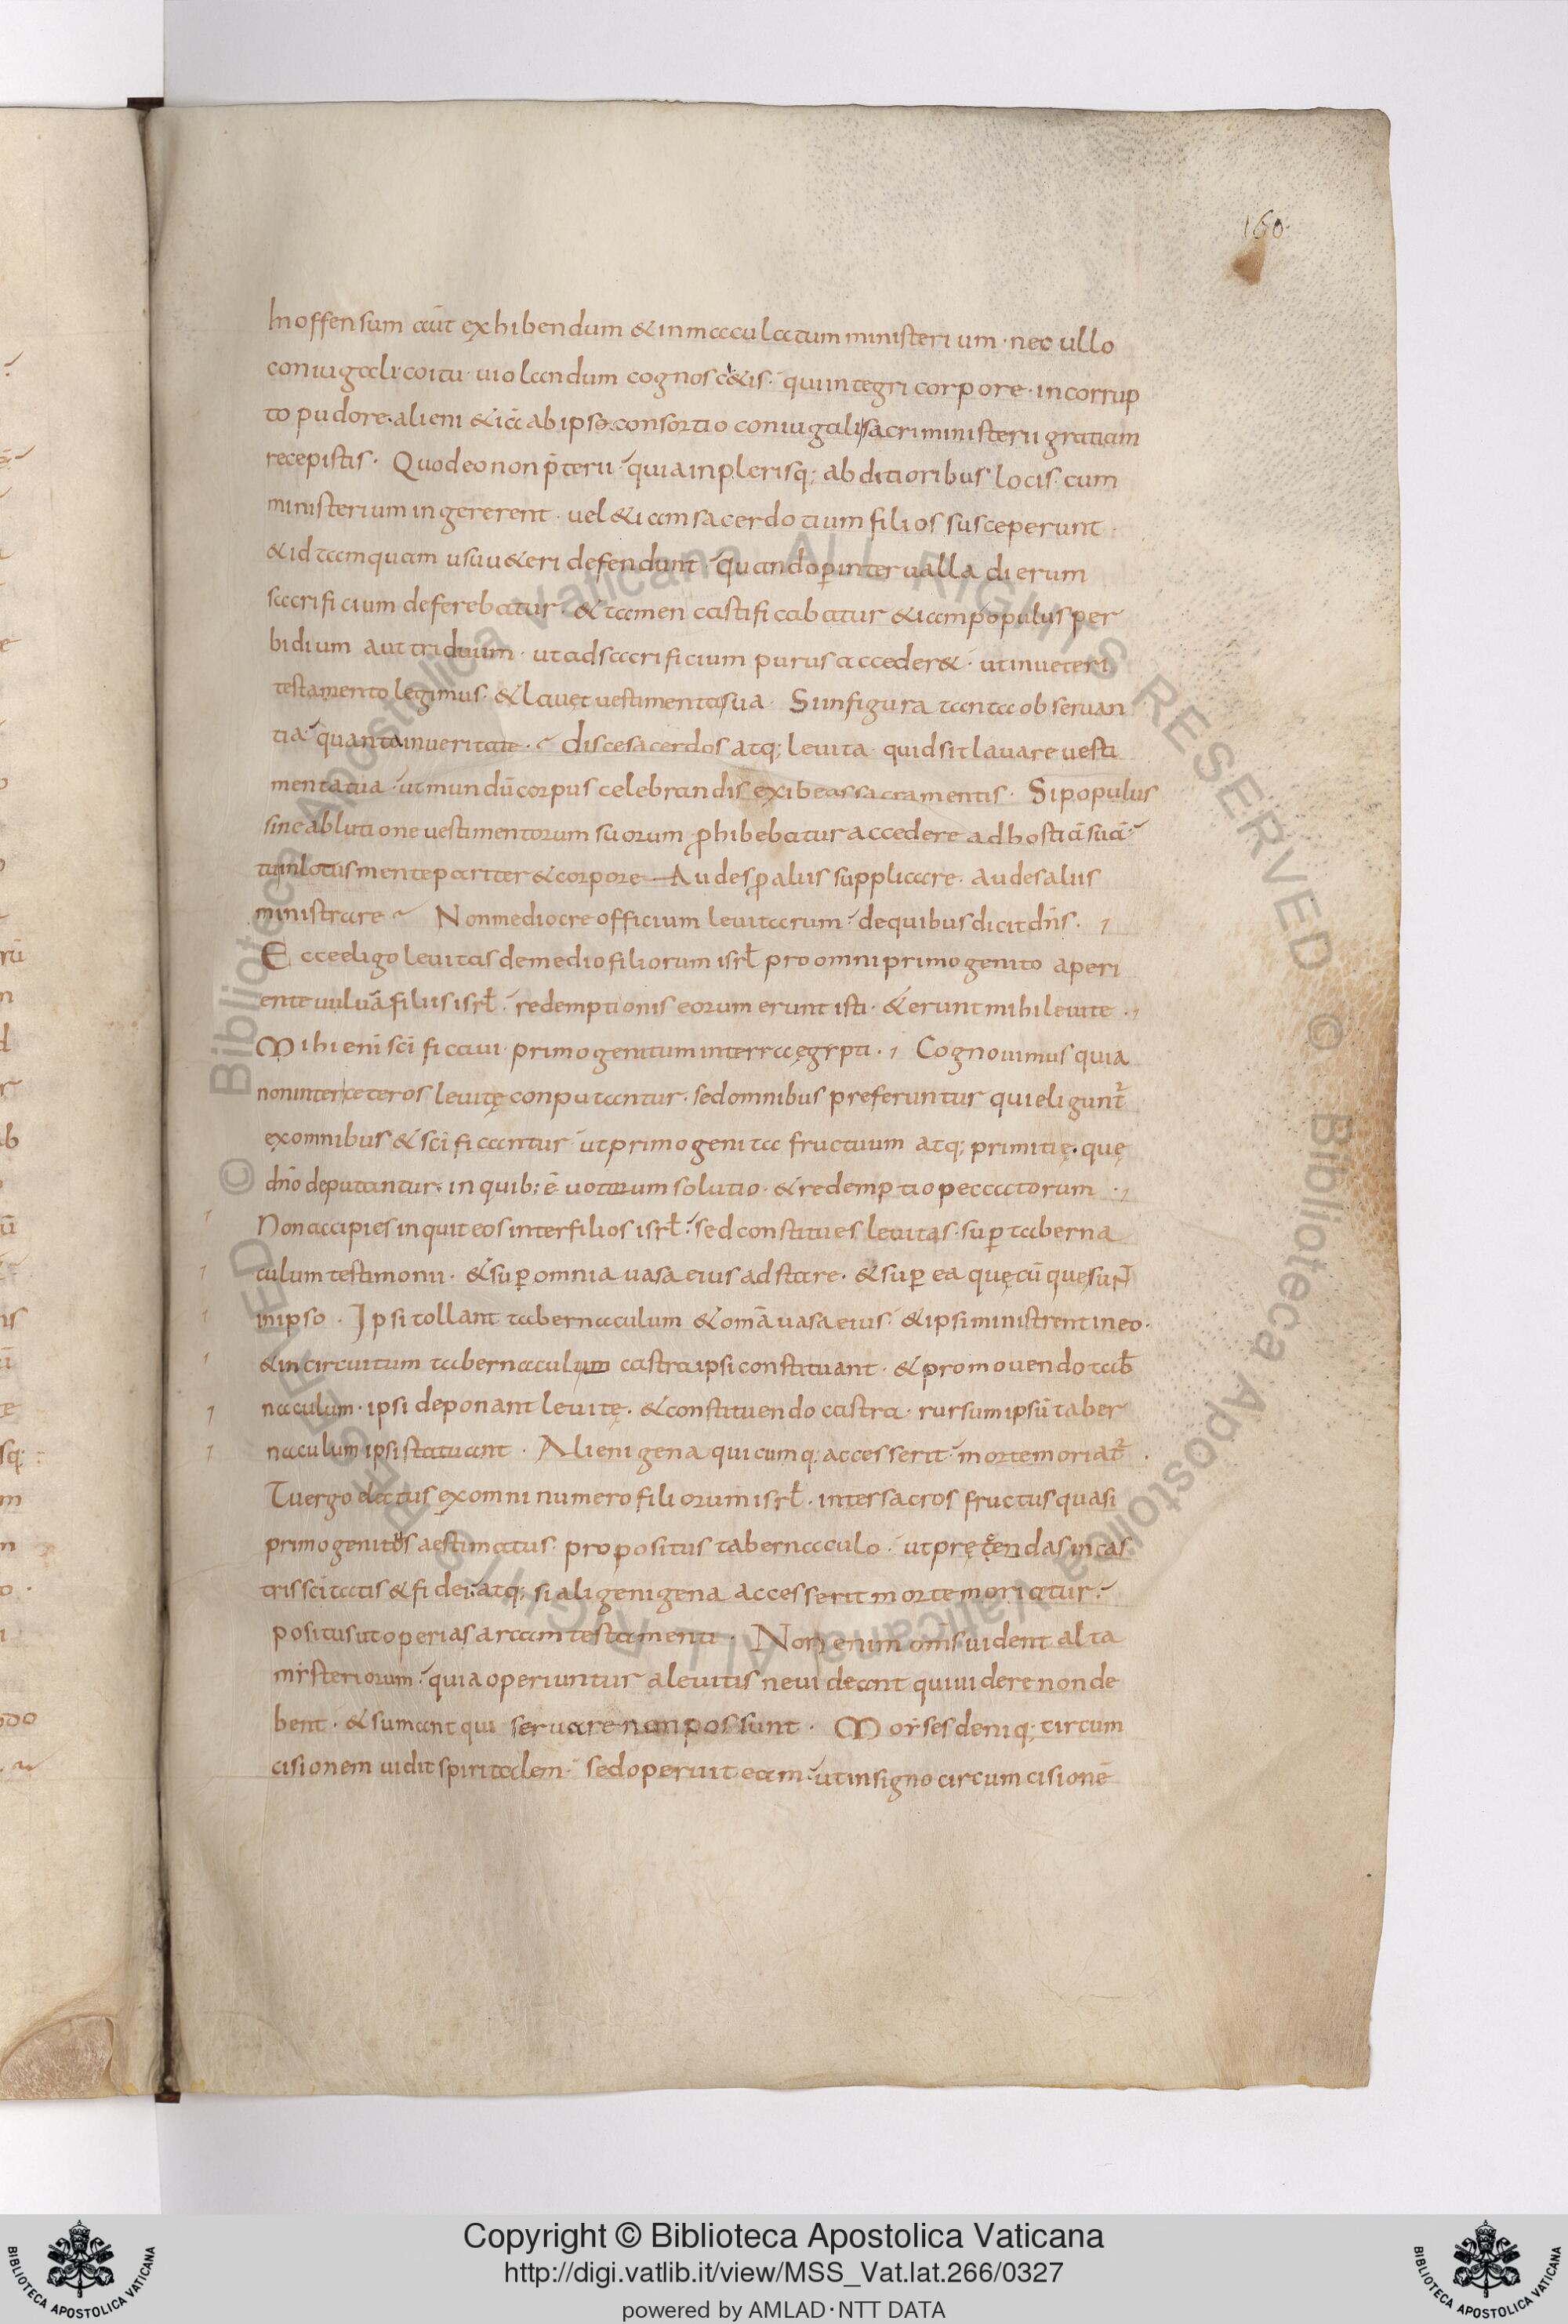 160
Inoffensum aūt exhibendum & inmaculatum ministerium · nec ullo
coniugali coitu uiolandum cognoscitis · qui integri corpore · incorrup
to pudore · alieni &iā ab ipso consortio coniugali sacri ministerii gratiam
recepistis · Quod eo non p̄terii · quia in plerisq; abditioribus locis cum
ministerium ingererent · uel &iam sacerdotium filios susceperunt ·
& id tamquam usu u&eri defendunt · quando p̱ interualla dierum
sacrificium deferebatur · & tamen castificabatur &iam populus per
biduum aut triduum · ut ad sacrificium purus acceder& · ut in ueteri
testamento legimus · & lauet uestimenta sua · Si in figura tanta obseruan
tia quanta in ueritate · disce sacerdos atq; leuita quid sit lauare uesti
menta tua · ut mundū corpus celebrandis exibeas sacramentis · Si populus
sine ablutione uestimentorum suorum ꝓhibebatur accedere ad hostiā suā
tu inlotus mente pariter & corpore Audes ꝓ aliis supplicare · audes aliis
ministrare Non mediocre officium leuitarum · de quibus dicit dn̄s ·
Ecce eligo leuitas de medio filiorum isrł pro omni primogenito aperi
ente uuluā filiis isrł · redemptionis eorum erunt isti · & erunt mihi leuite ·
Mihi eni scīficaui primogenitum in terra ęgypti · Cognouimus quia
non inter ceteros leuitę conputantur · sed omnibus preferuntur qui eligunt̄
ex omnibus & scīficantur ut primogenita fructuum atq; primitię · quę
dn̄o deputantur · in quib: ē uotorum solutio · & redemptio peccatorum ·
Non accipies inquit eos inter filios isrł · sed constitues leuitas · sup̱ taberna
culum testimonii · & sup̱ omnia uasa eius adstare · & sup̱ ea quęcū que sunt
in ipso · Ipsi tollant tabernaculum & omā uasa eius · & ipsi ministrent in eo ·
& in circuitum tabernaculum castra ipsi constituant · & promouendo tab̄
naculum · ipsi deponant leuitę · & constituendo castra · rursum ipsū taber
naculum ipsi statuant · Alienigena quicumq; accesserit morte moriat̄ ·
Tu ergo electus ex omni numero filiorum isrł · inter sacros fructus quasi
primogenitos aestimatus propositus tabernaculo · ut prętendas in cas
tris scītatis & fidei · atq; si aligenigena accesserit morte moriatur ·
positus ut operias arcam testamenti · Non enim omīs uident alta
mysteriorum · quia operiuntur a leuitis ne uideant qui uidere non de
bent · & sumant qui seruare non possunt · Moyses deniq; circum
cisionem uidit spiritalem · sed operuit eam · ut in signo circumcisionē
Copyright © Biblioteca Apostolica Vaticana
http://digi.vatlib.it/view/MSS_Vat.lat.266/0327
powered by AMLAD·NTT DATA